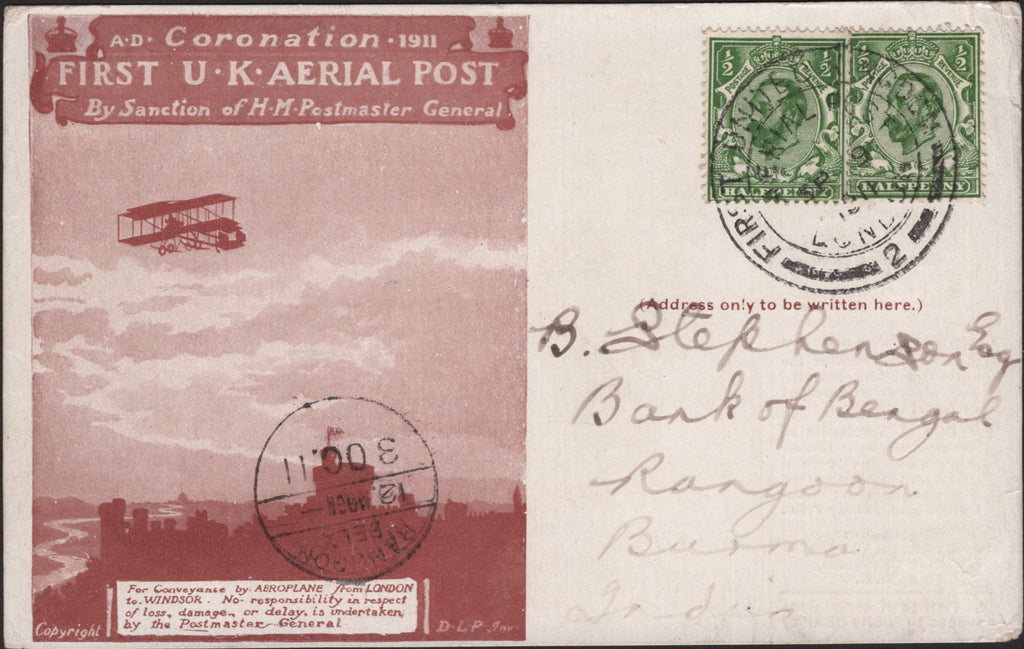 A·D· Coronation · 1911
FIRST U·K·AERIAL POST
By Sanction of H·M·Postmaster General
For Conveyance by AEROPLANE from LONDON
to WINDSOR. No responsibility in respect
of loss, damage, or delay, is undertaken
by the Postmaster General
Copyright
D·L·P· Inv.
3 OC.11
12.
RANGOON
½ POSTAGE REVENUE ½
½ POSTAGE REVENUE ½
HALFPENNY
HALFPENNY
FIRST
AERIAL
LOND
2
(Address only to be written here.)
B. Stephenson Esq
Bank of Bengal
Rangoon
Burma
India